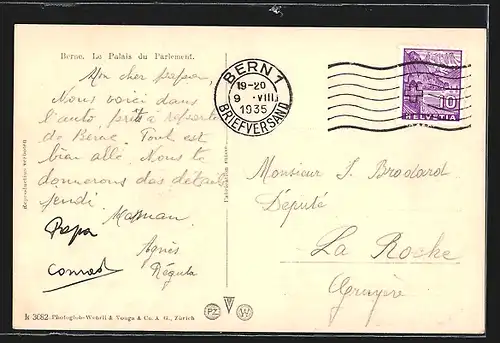 Berne. Le Palais du Parlement.
Mon cher papa,
Nous voici dans
l'auto, prête à repartir
de Berne. Tout est
bien allé. Nous te
donnerons des détails
jeudi.
Maman
Papa
Agnès
Conrad
Régula
Reproduction verboten
k 3082 Photoglob-Wehrli & Vouga & Co. A. G., Zürich
BERN 1
19-20
9 ·VIII
1935
BRIEFVERSAND
10
HELVETIA
Monsieur J. Brodard
Député
La Roche
Gruyère
PZ
W